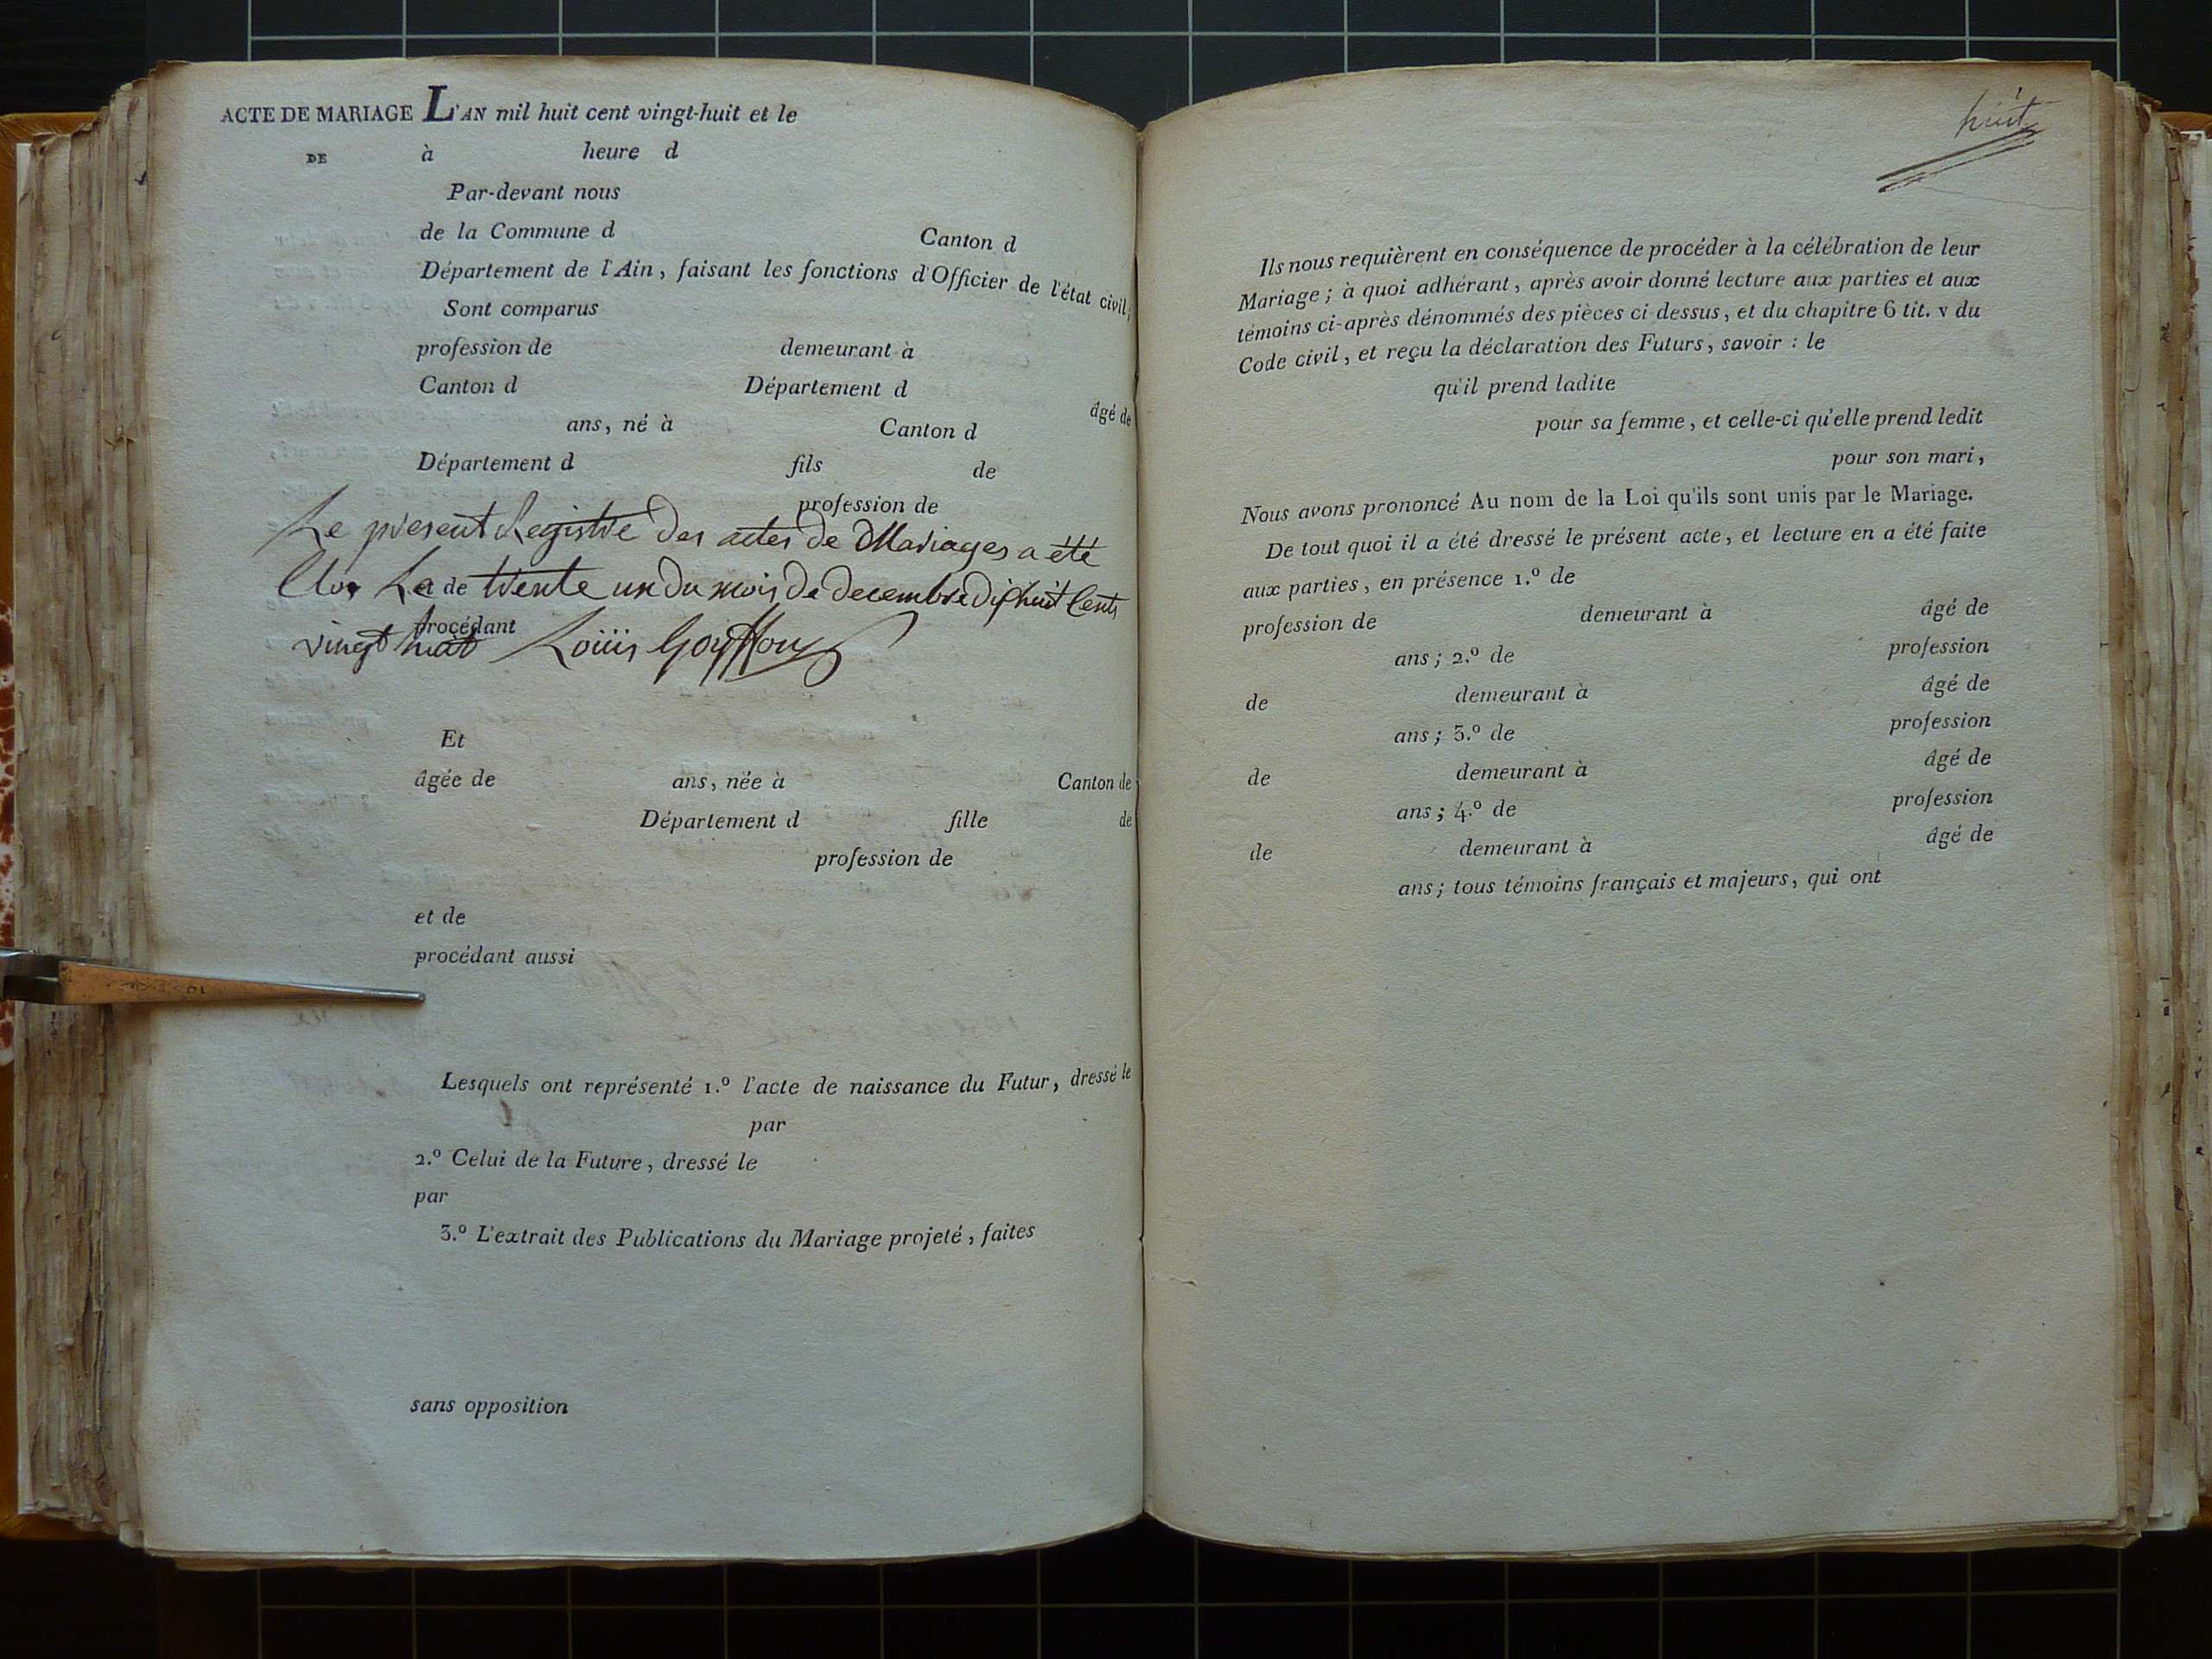 ACTE DE MARIAGE L'AN mil huit cent vingt-huit et le
DE à heure d
Par-devant nous
de la Commune d Canton d
Département de l'Ain, faisant les fonctions d'Officier de l'état civil,
Sont comparus
profession de demeurant à
Canton d Département d âgé de
ans, né à Canton d
Département d fils de
profession de
Le present Registre des actes de Mariages a été
Clos Le de trente un du mois de decembre dix huit Cents
procédant
vingt huit Loüis Goyffon
Et
âgée de ans, née à Canton de
Département d fille de
profession de
et de
procédant aussi
Lesquels ont représenté 1.º l'acte de naissance du Futur, dressé le
par
2.º Celui de la Future, dressé le
par
3.º L'extrait des Publications du Mariage projeté, faites
sans opposition
huit
Ils nous requièrent en conséquence de procéder à la célébration de leur
Mariage; à quoi adhérant, après avoir donné lecture aux parties et aux
témoins ci-après dénommés des pièces ci-dessus, et du chapitre 6 tit. v du
Code civil, et reçu la déclaration des Futurs, savoir : le
qu'il prend ladite
pour sa femme, et celle-ci qu'elle prend ledit
pour son mari,
Nous avons prononcé Au nom de la Loi qu'ils sont unis par le Mariage.
De tout quoi il a été dressé le présent acte, et lecture en a été faite
aux parties, en présence 1.º de
profession de demeurant à âgé de
ans; 2.º de profession
de demeurant à âgé de
ans; 3.º de profession
de demeurant à âgé de
ans; 4.º de profession
de demeurant à âgé de
ans; tous témoins français et majeurs, qui ont